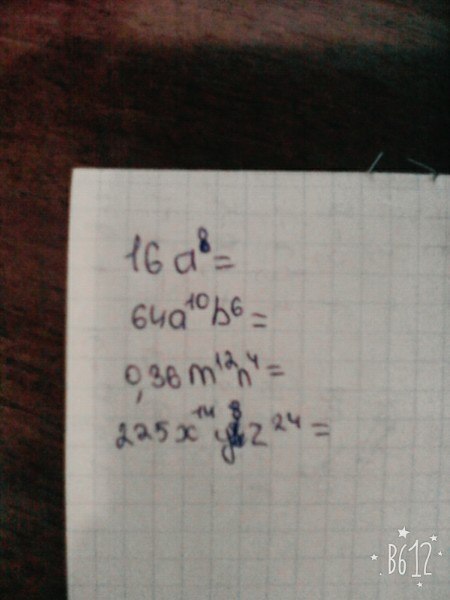 16a⁸=
64a¹⁰b⁶=
0,36m¹²n⁴=
225x¹⁴y⁸z²⁴=
B612